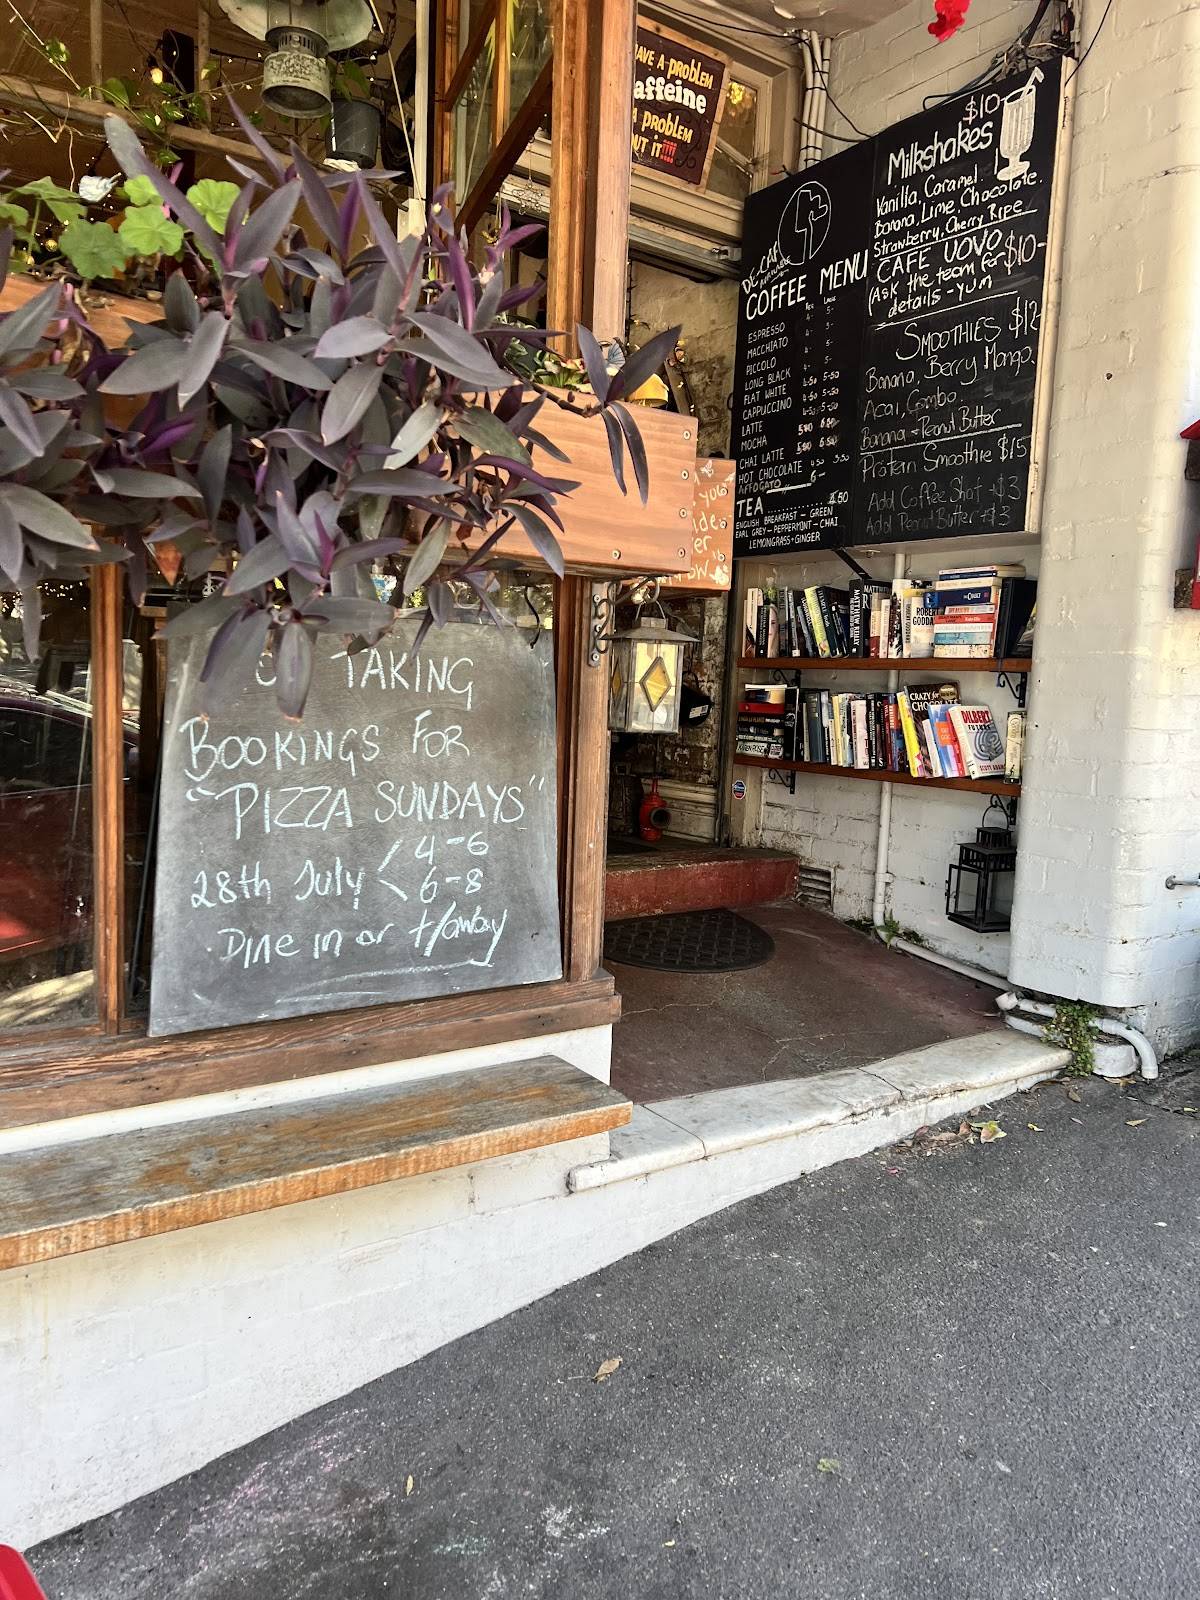 AVE A PROBLEM
affeine
A PROBLEM
UT IT!!!!
DE-CAF
AVAILABLE
COFFEE MENU
ESPRESSO 4- 5-
MACCHIATO 4- 5-
PICCOLO 4-
LONG BLACK 4- 5-
FLAT WHITE 4.50 5-50
CAPPUCCINO 4-50 5-50
LATTE 4-50 5-50
MOCHA
CHAI LATTE
HOT CHOCOLATE 4.50 5.50
AFFOGATO 6-
TEA 4.50
ENGLISH BREAKFAST - GREEN
EARL GREY - PEPPERMINT - CHAI
LEMONGRASS + GINGER
$10-
Milkshakes
Vanilla, Caramel,
Banana, Lime, Chocolate.
Strawberry, Cherry Ripe
CAFE UOVO $10-
(ASK the team for
details - YUM
SMOOTHIES $12
Banana, Berry, Mango.
Acai, Combo.
Banana + Peanut Butter
Protein Smoothie $15
Add Coffee Shot +$3
Add Peanut Butter +$3
TAKING
BOOKINGS FOR
"PIZZA SUNDAYS"
28th July < 4-6
6-8
. DINE IN or t/away
MATTHEW REILLY
ROBERT
GODDARD
CRAZY for
CHOCOLATE
DILBERT
FUTURE
SCOTT ADAMS